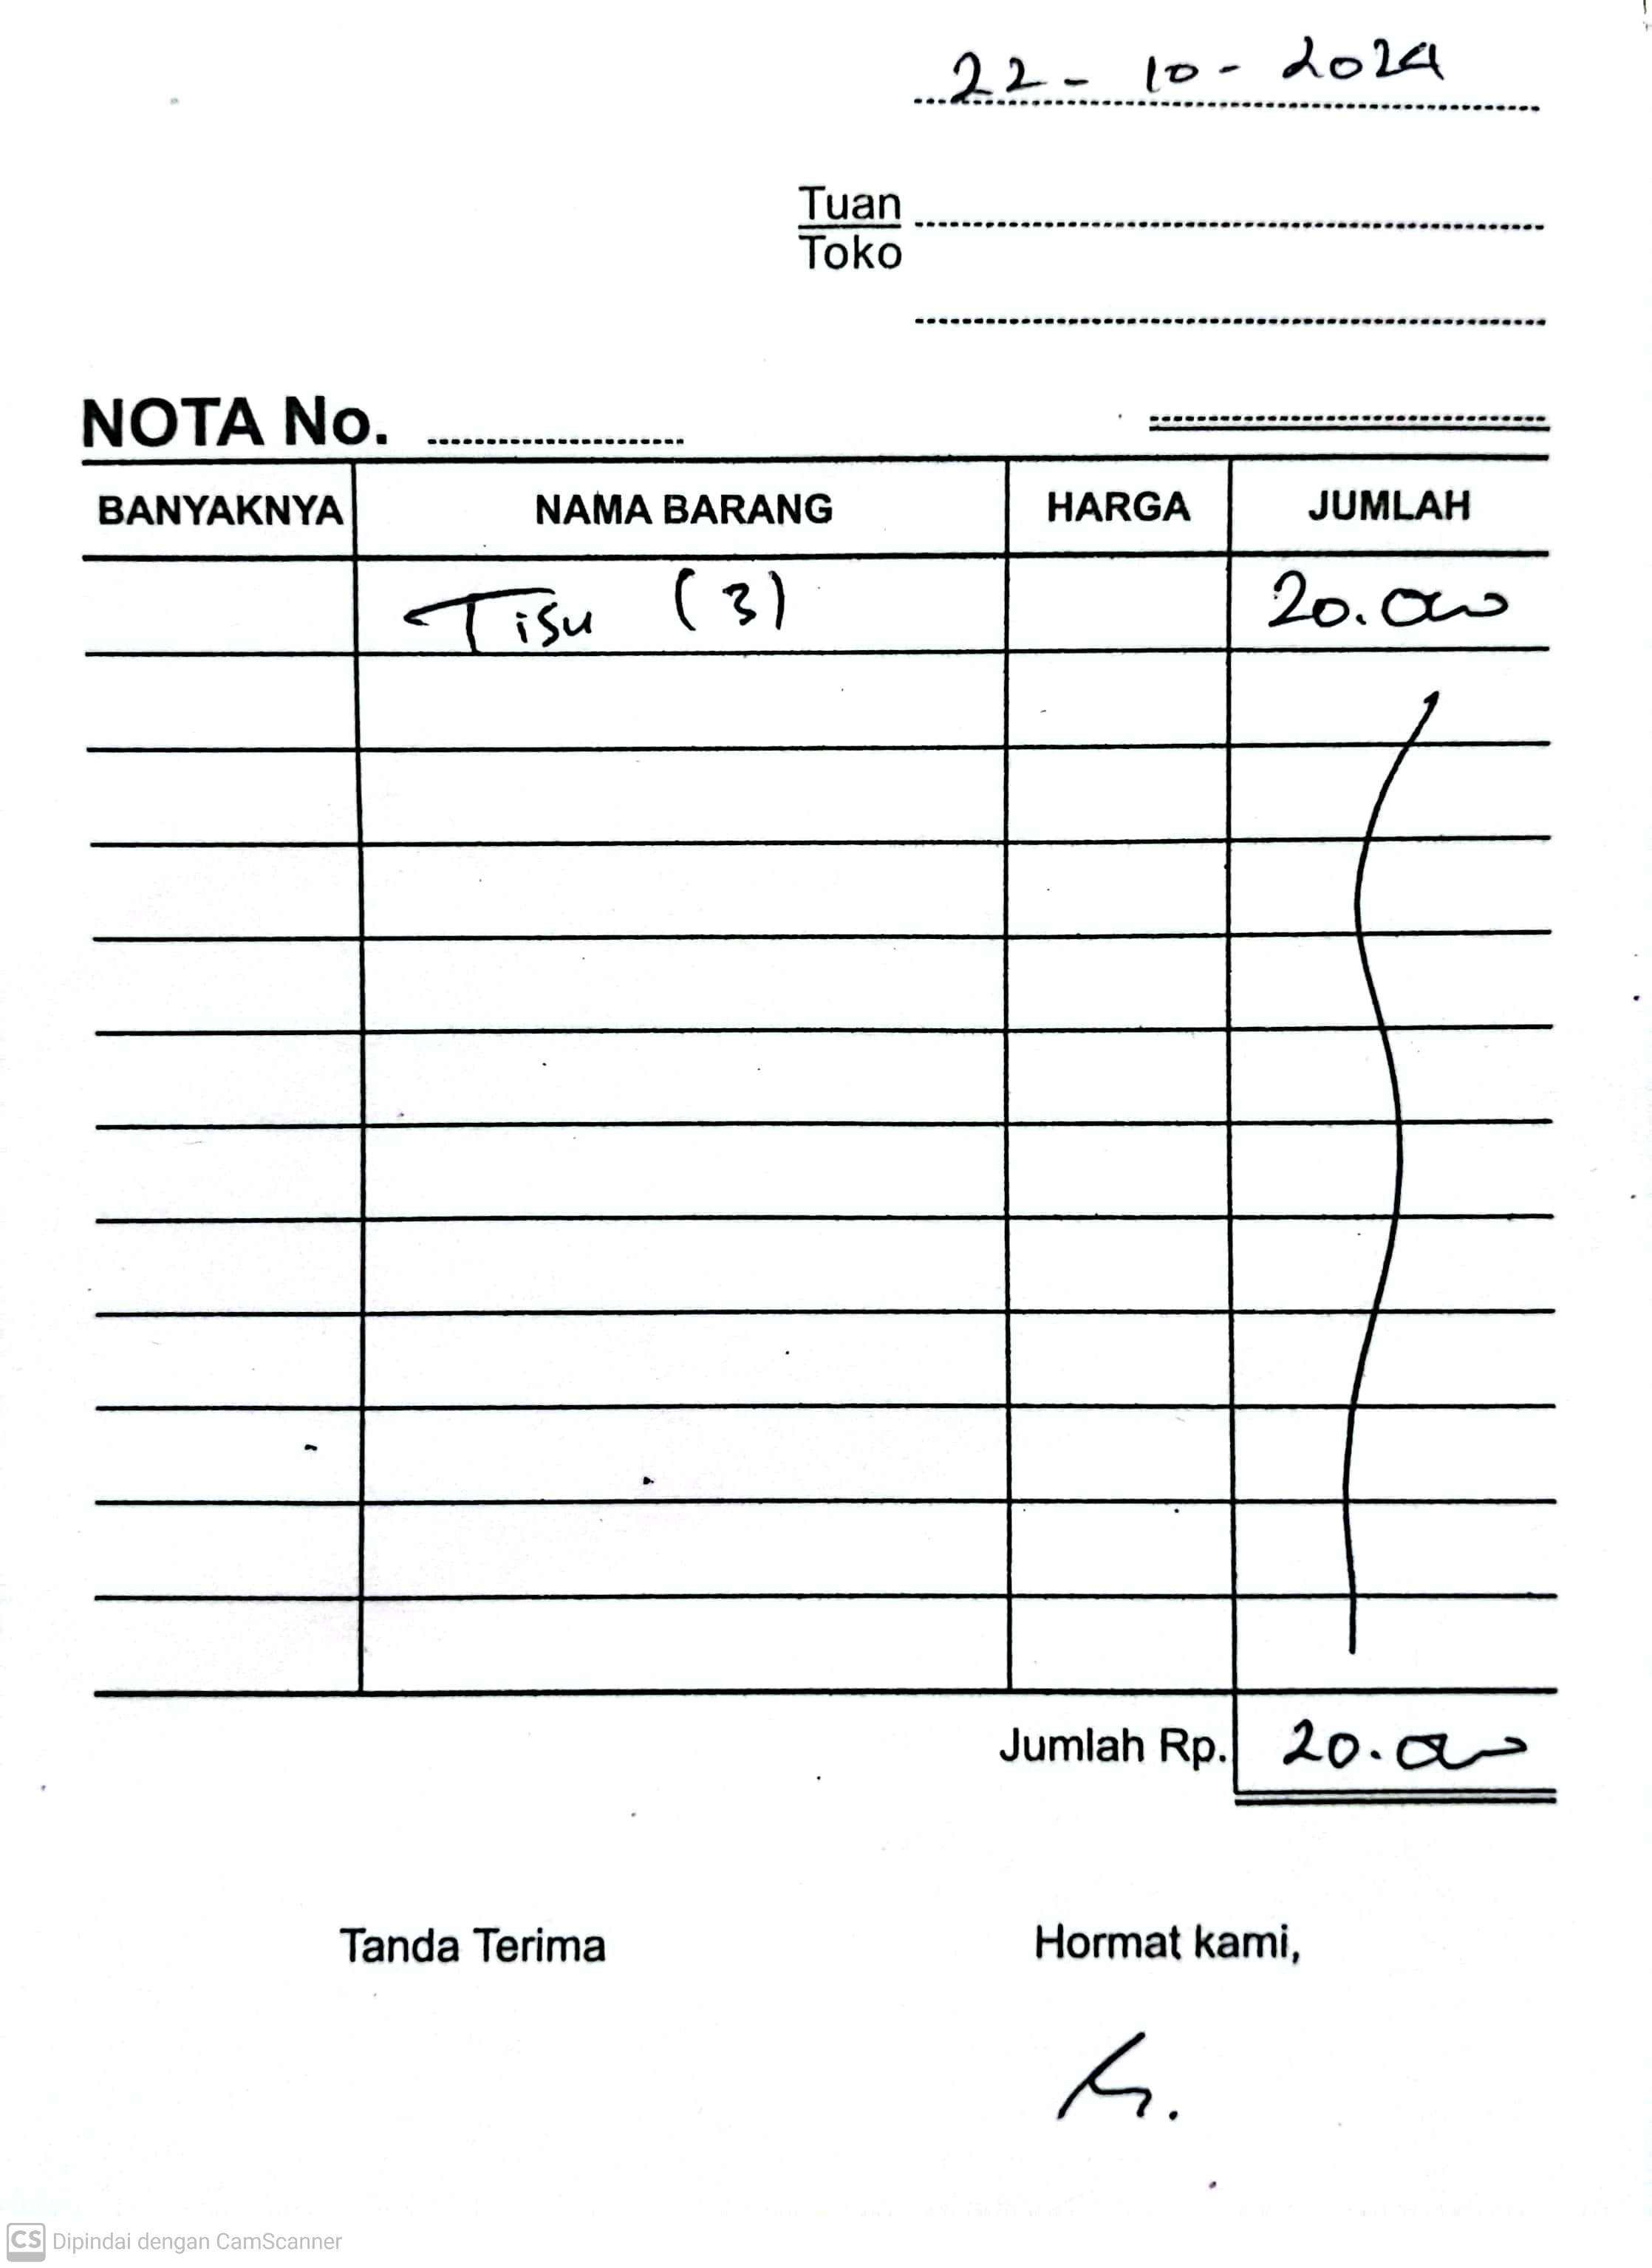 22 - 10 - 2024
Tuan
Toko
NOTA No.
BANYAKNYA NAMA BARANG HARGA JUMLAH
Tisu (3) 20.000
Jumlah Rp. 20.000
Tanda Terima Hormat kami,
CS Dipindai dengan CamScanner